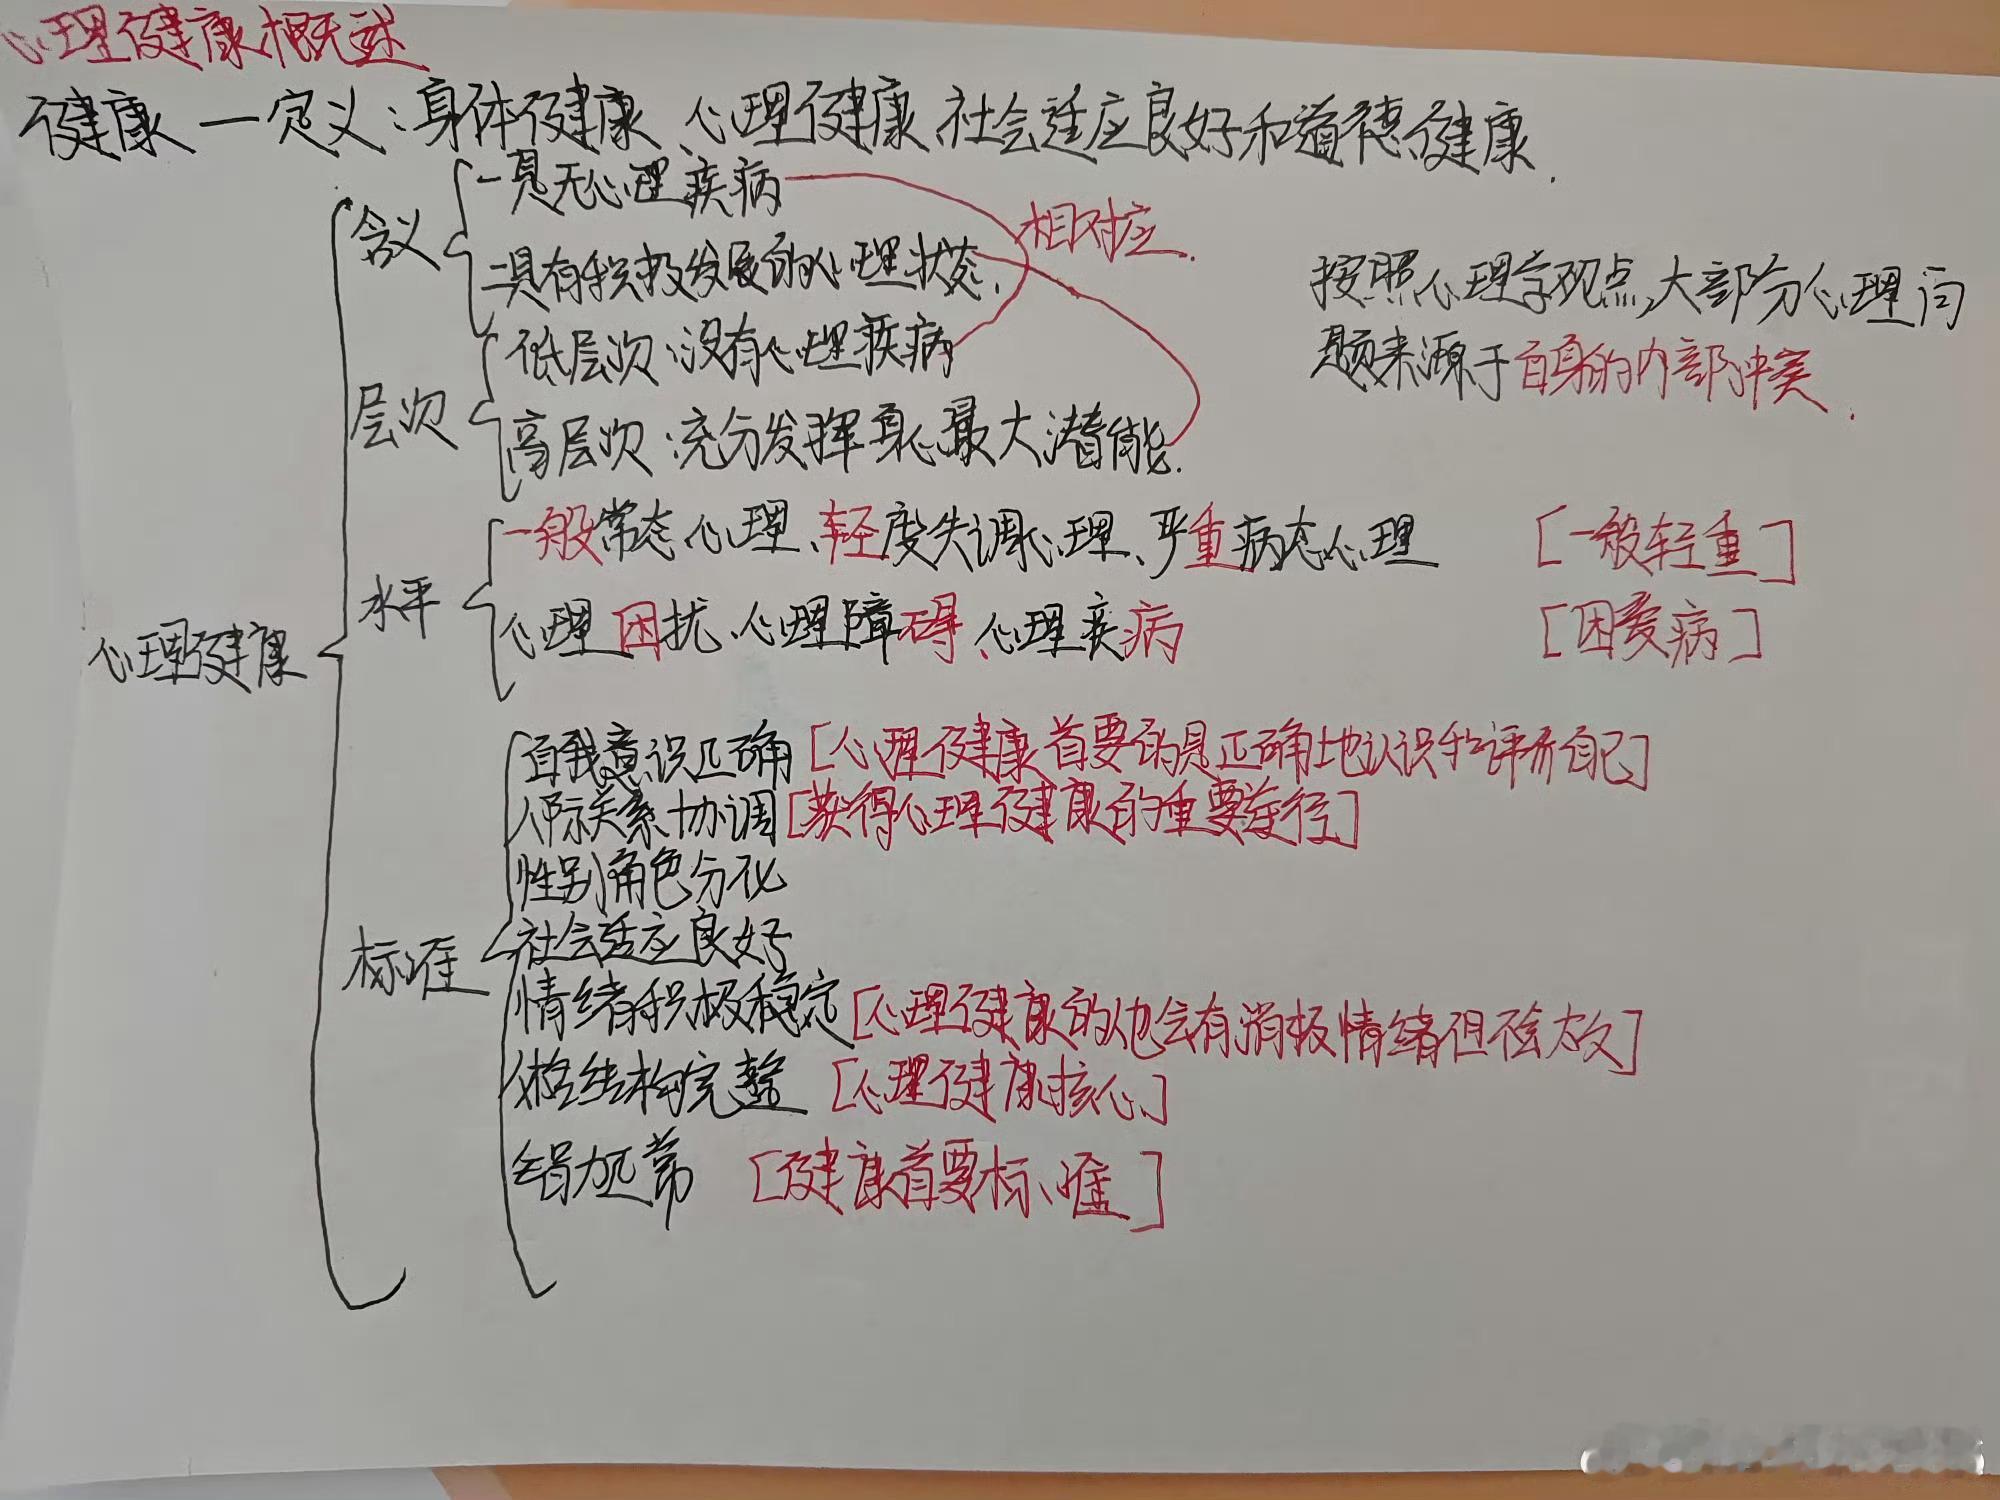 心理健康概述
健康一定义:身体健康、心理健康、社会适应良好和道德健康.
心理健康
含义
一是无心理疾病
二具有积极发展的心理状态.
相对应.
层次
低层次:没有心理疾病
高层次:充分发挥身心最大潜能.
按照心理学观点,大部分心理问
题来源于自身的内部冲突.
水平
一般常态心理、轻度失调心理、严重病态心理 [一般轻重]
心理困扰、心理障碍、心理疾病 [困爱病]
标准
自我意识正确[心理健康首要的是正确地认识和评价自己]
人际关系协调[获得心理健康的重要途径]
性别角色分化
社会适应良好
情绪积极稳定[心理健康的人也会有消极情绪但不会太久]
人格结构完整 [心理健康核心]
智力正常 [健康首要标准]